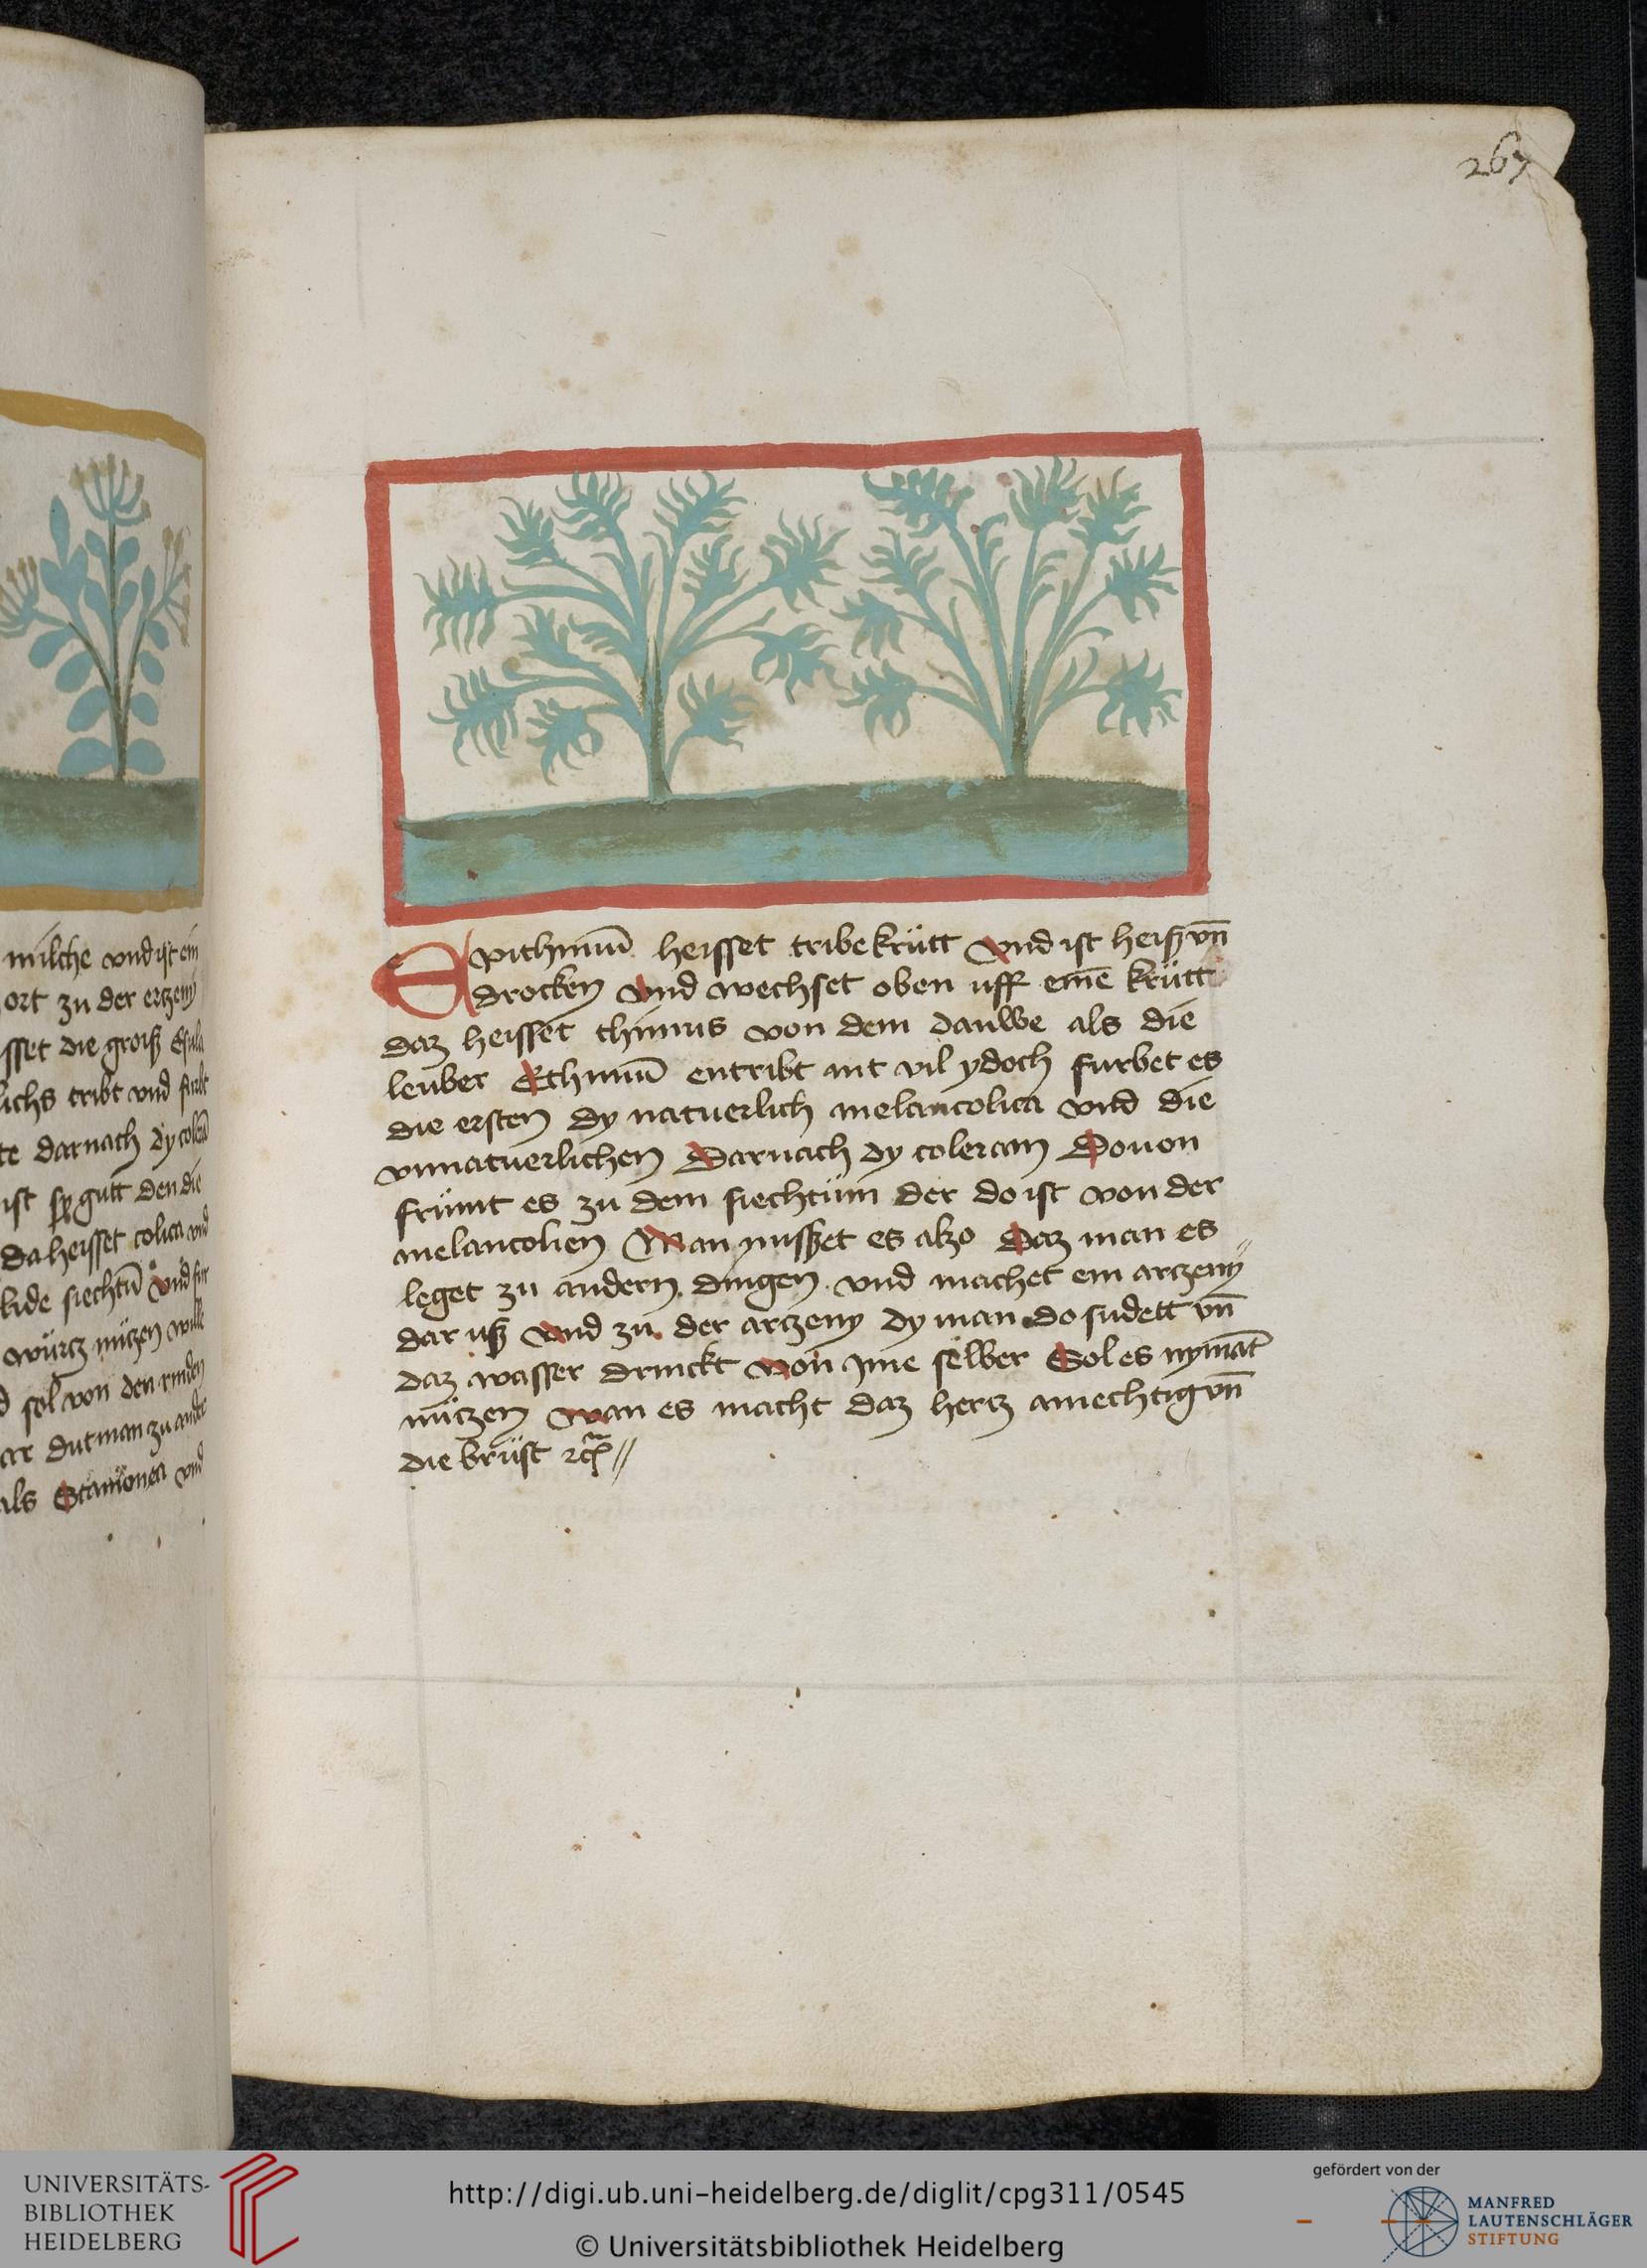 milche vnd ist ein
ort zu der erczeny
sset die groiß Esula
lichs tribt vnd furbt
te darnach dy coler
ist sy gutt den die
da heisset colica vnd
lide siechtu vnd fur
würtz nützen wille
d sol von den rinden
ar dut man zu ande
als Scamonea vnd
267
Epithimiū heisset tribekrütt vnd ist heiß vn̄
drocken vnd wechset oben uff eine krütt
daz heisset thimus von dem dauwe als die
leuber Ethimiū entribt nit vil ydoch furbet es
die ersten dy natuerlich melancolica vnd die
vnnatuerlichen Darnach dy coleram Dovon
frümt es zu dem siechtüm der do ist von der
melancolien Man nüsset es alzo Daz man es
leget zu andern dingen vnd machet ein arczeny
dar uß vnd zu der arczeny dy man do sudett vn̄
daz wasser drinckt von ime selber Sol es nymāt
nützen wan es macht daz hertz amechtig vn̄
die brüst
UNIVERSITÄTS-
BIBLIOTHEK
HEIDELBERG
http://digi.ub.uni-heidelberg.de/diglit/cpg311/0545
© Universitätsbibliothek Heidelberg
gefördert von der
MANFRED
LAUTENSCHLÄGER
STIFTUNG